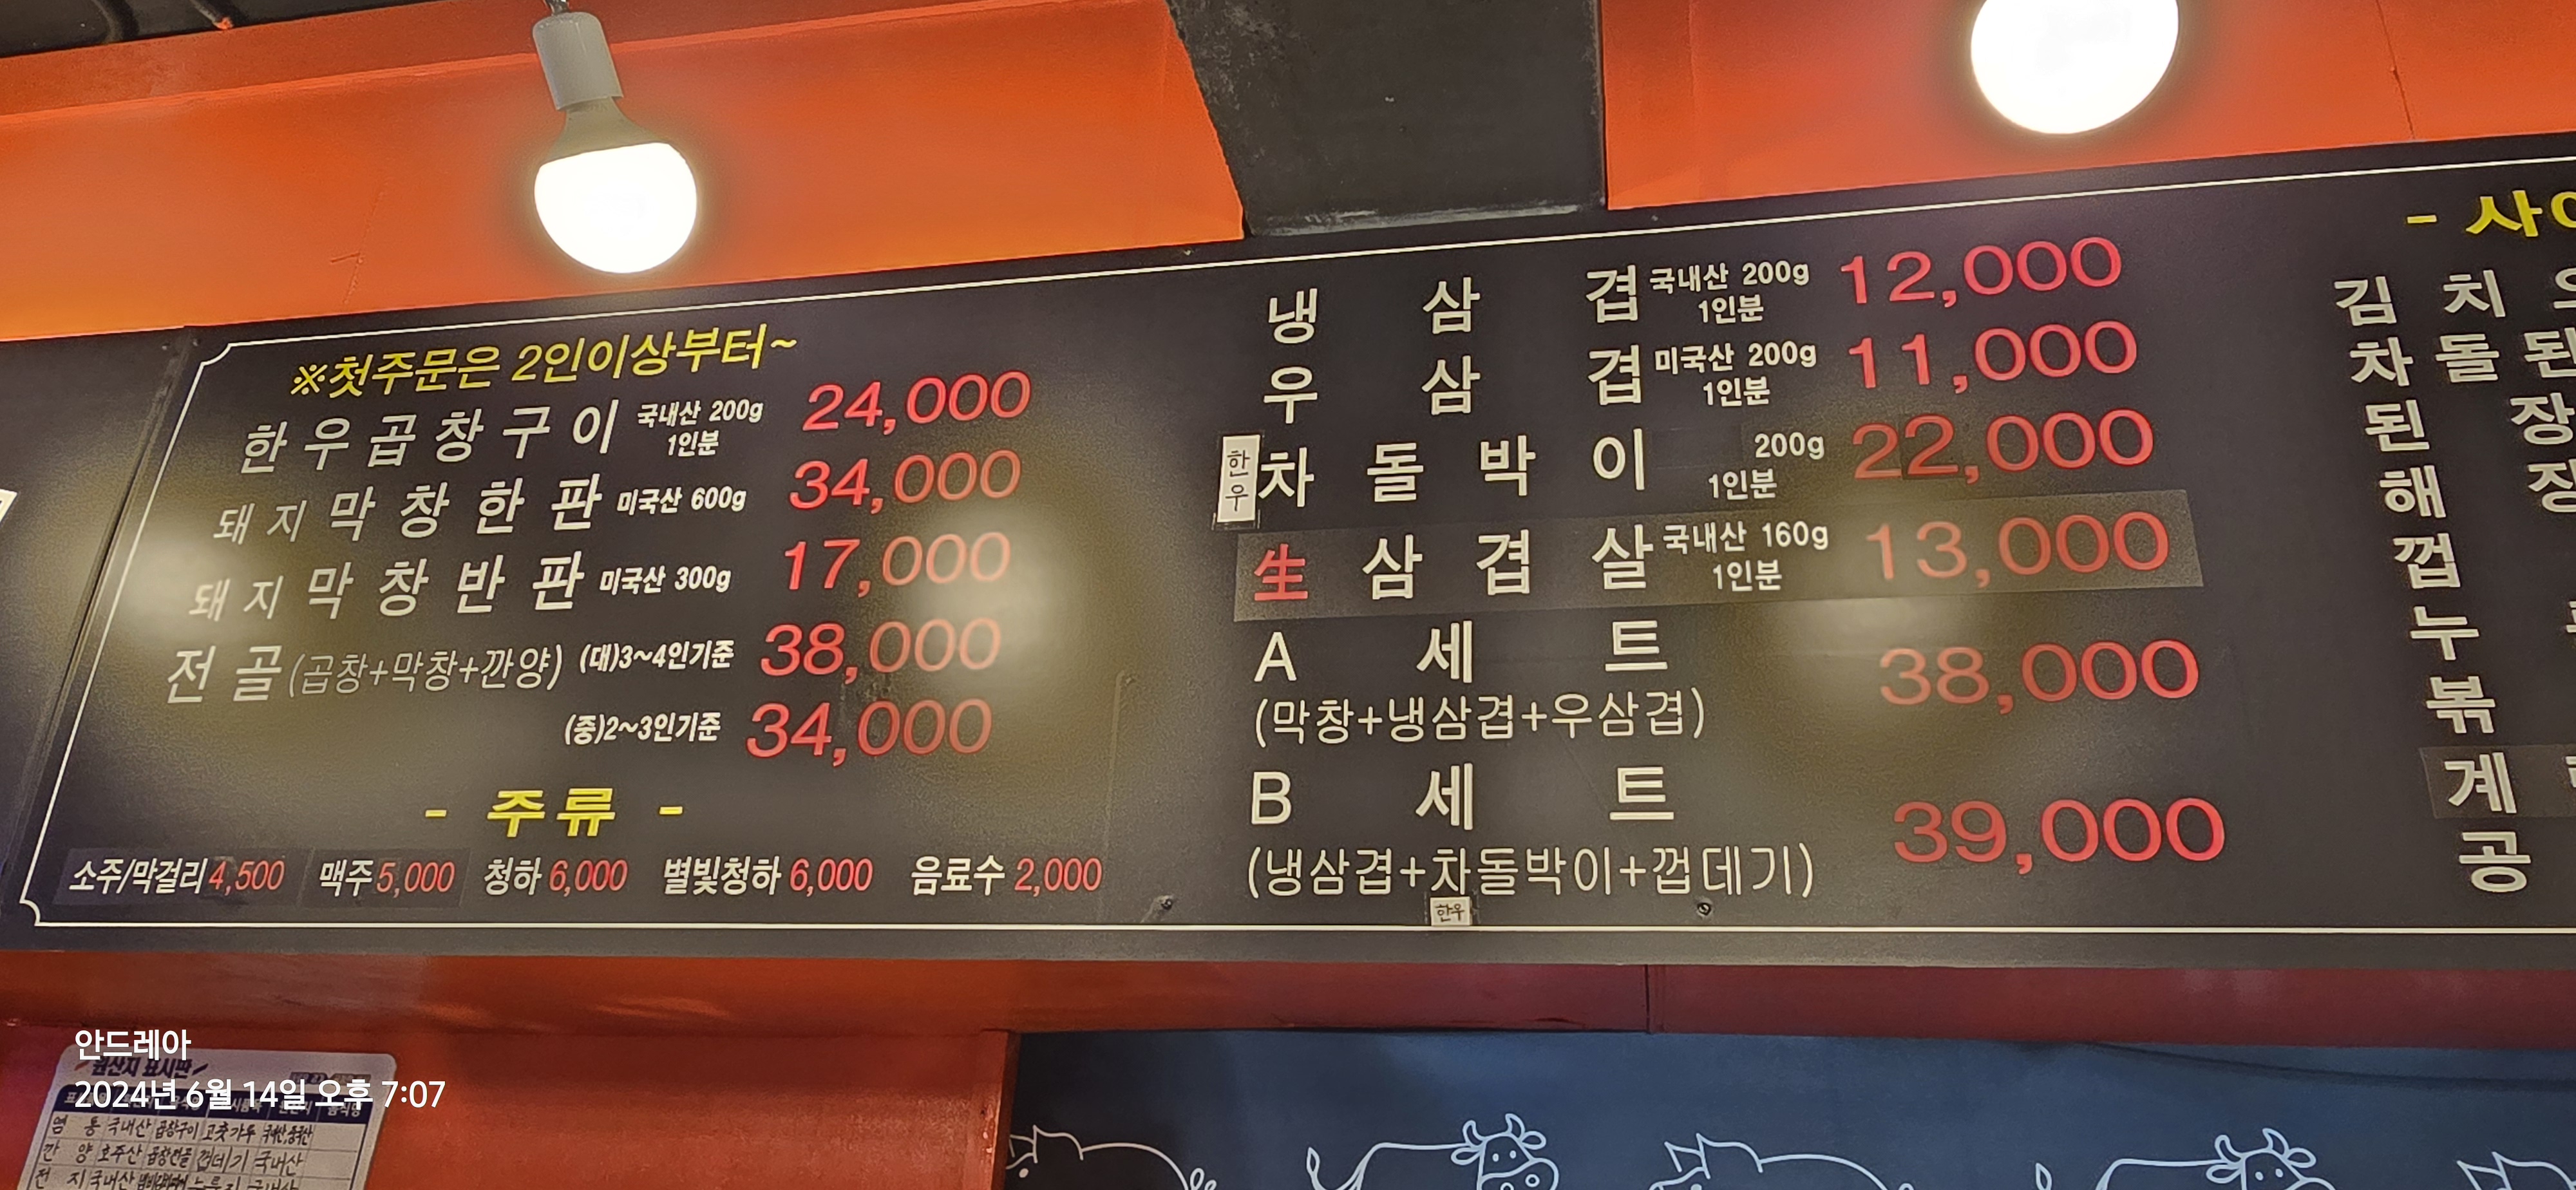 ※첫주문은 2인이상부터~
한우곱창구이 국내산 200g 1인분 24,000
돼지막창한판 미국산 600g 34,000
돼지막창반판 미국산 300g 17,000
전골(곱창+막창+깐양) (대)3~4인기준 38,000
(중)2~3인기준 34,000
- 주류 -
소주/막걸리 4,500 맥주 5,000 청하 6,000 별빛청하 6,000 음료수 2,000
냉삼겹 국내산 200g 1인분 12,000
우삼겹 미국산 200g 1인분 11,000
한우 차돌박이 200g 1인분 22,000
生삼겹살 국내산 160g 1인분 13,000
A세트 38,000
(막창+냉삼겹+우삼겹)
B세트 39,000
(냉삼겹+차돌박이+껍데기)
한우
김치
차돌된
된장
해장
껍
누
볶
계
공
안드레아
원산지 표시판
2024년 6월 14일 오후 7:07
염통 국내산 곱창구이 고춧가루
깐양 호주산 곱창전골 껍데기 국내산